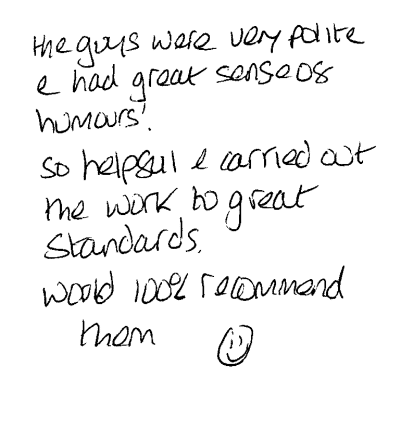 the guys were very polite
& had great sense of
humours'.
so helpful & carried out
the work to great
standards.
would 100% recommend
them ☺